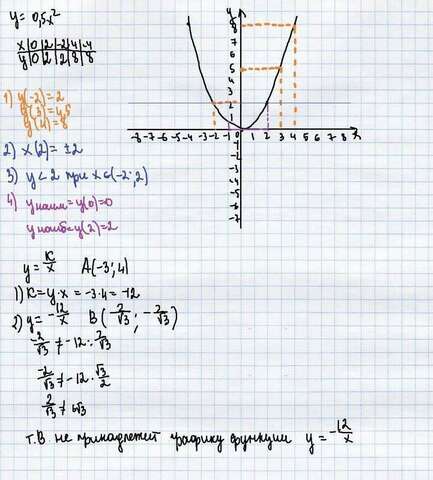 y = 0,5x²
x|0|2|-2|4|-4
y|0|2|2|8|8
1) y(-2) = 2
y(3) = 4,5
y(4) = 8
2) x(2) = ±2
3) y < 2 при x ∈ (-2; 2)
4) yнаим = y(0) = 0
yнаиб = y(2) = 2
y
8
7
6
5
4
3
2
1
-8 -7 -6 -5 -4 -3 -2 -1 0 1 2 3 4 5 6 7 8 x
-1
-2
-3
-4
-5
-6
-7
y = K/x A(-3; 4)
1) K = y·x = -3·4 = -12
2) y = -12/x B(2/√3; -2/√3)
-2/√3 ≠ -12 : 2/√3
-2/√3 ≠ -12 · √3/2
2/√3 ≠ 6√3
т.В не принадлежит графику функции y = -12/x